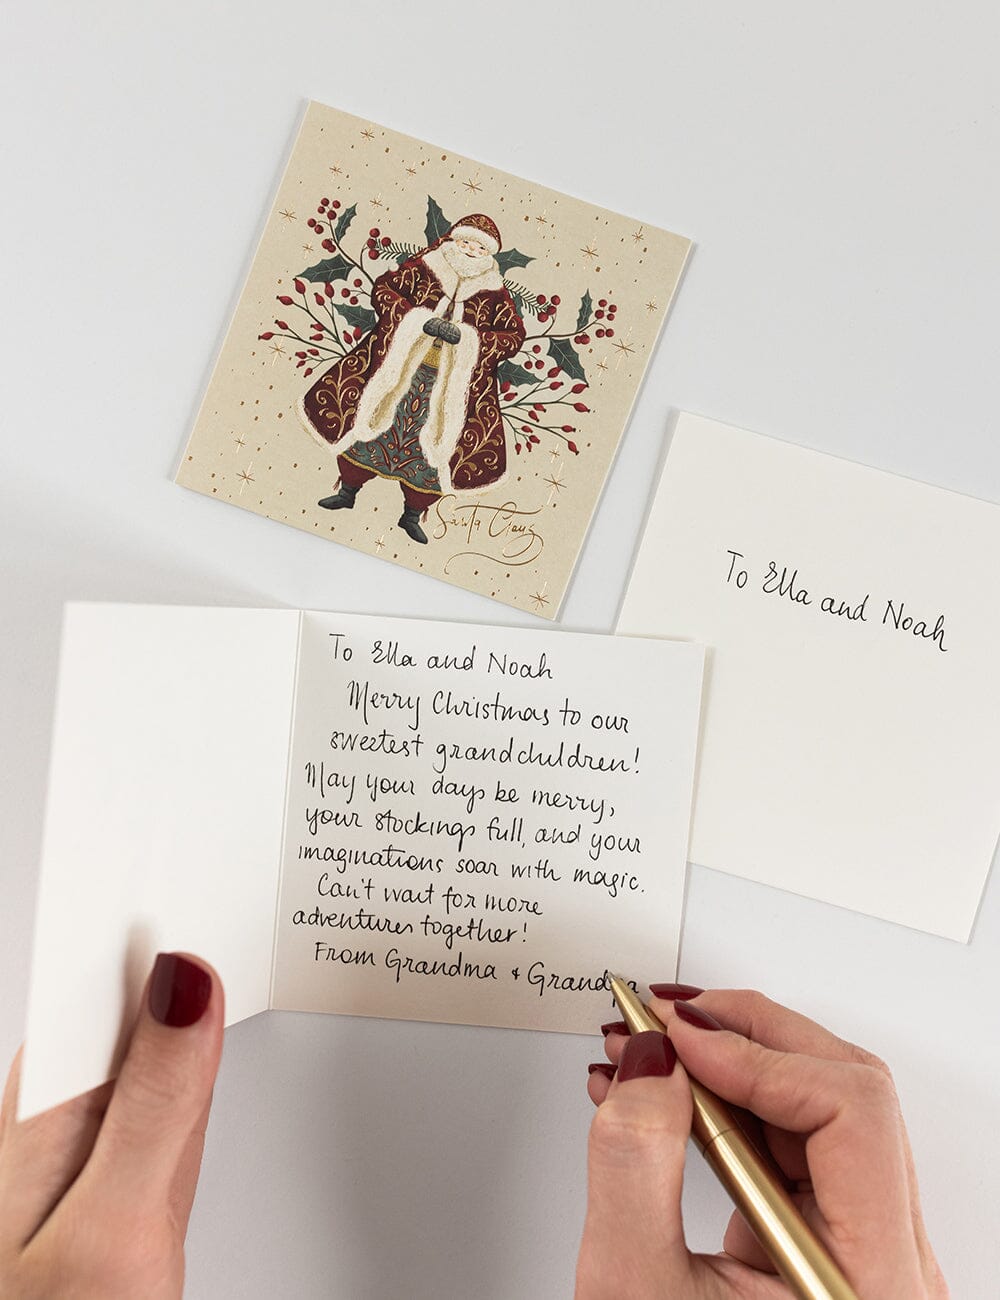 Santa Claus
To Ella and Noah
To Ella and Noah
Merry Christmas to our
sweetest grandchildren!
May your days be merry,
your stockings full, and your
imaginations soar with magic.
Can't wait for more
adventures together!
From Grandma & Grandpa